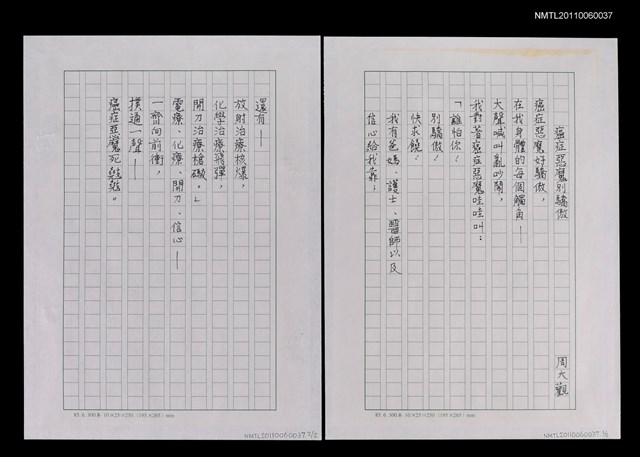 NMTL20110060037
癌症惡魔別驕傲
周大觀
癌症惡魔好驕傲，
在我身體的每個觸角—
大聲喊叫亂吵鬧，
我對著癌症惡魔哇哇叫：
「誰怕你！
別驕傲！
快求饒！
我有爸媽、護士、醫師以及
信心給我靠；
還有—
放射治療核爆，
化學治療飛彈，
開刀治療槍礮。」
電療、化療、開刀、信心—
一齊向前衝，
撲通一聲—
癌症惡魔死翹翹。
85. 6. 300本 10×25=250 (195×265) mm
NMTL20110060037.2/2
85. 6. 300本 10×25=250 (195×265) mm